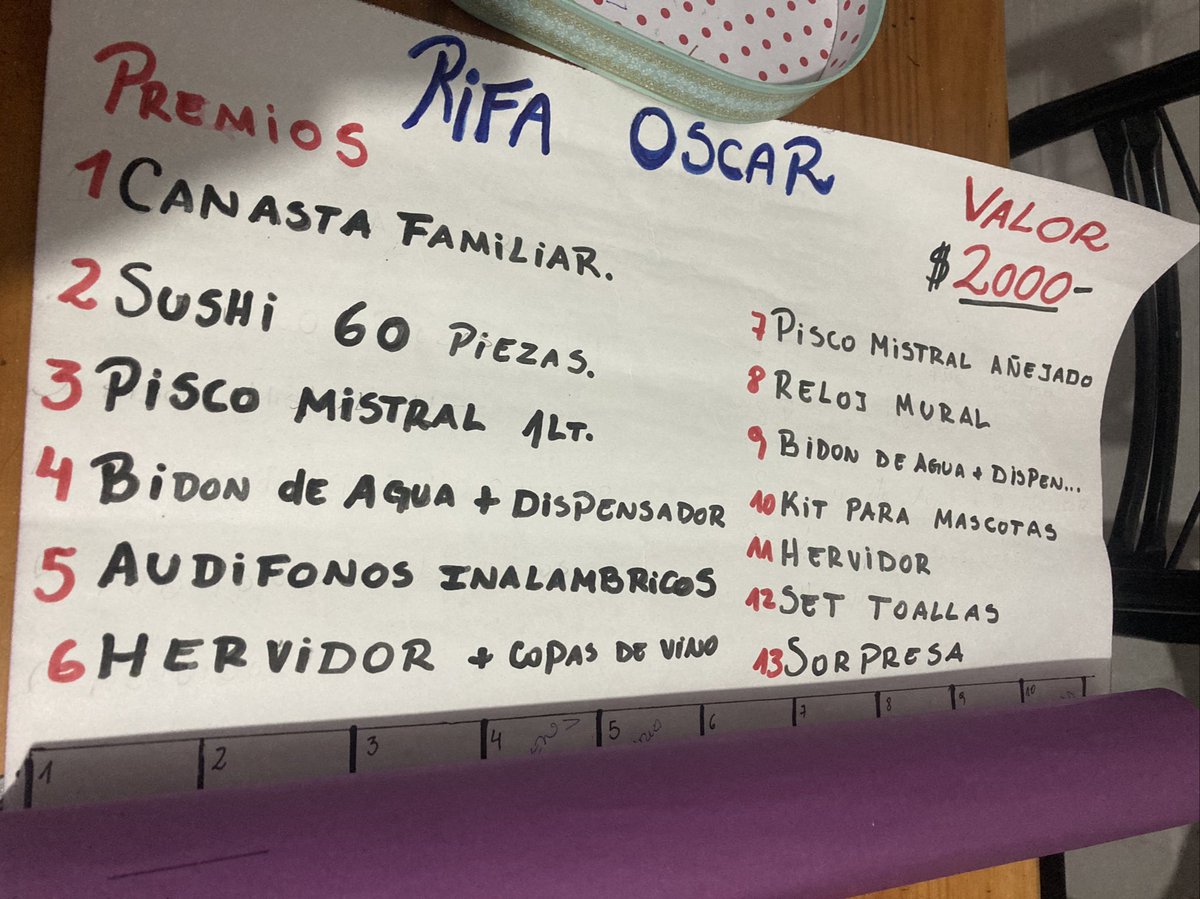 RIFA OSCAR
PREMIOS
VALOR
$2000-
1 CANASTA FAMILIAR.
2 SUSHI 60 PIEZAS.
3 PISCO MISTRAL 1LT.
4 BIDON de AGUA + DISPENSADOR
5 AUDIFONOS INALAMBRICOS
6 HERVIDOR + COPAS DE VINO
7 PISCO MISTRAL AÑEJADO
8 RELOJ MURAL
9 BIDON DE AGUA + DISPEN...
10 KIT PARA MASCOTAS
11 HERVIDOR
12 SET TOALLAS
13 SORPRESA
1 2 3 4 5 6 7 8 9 10